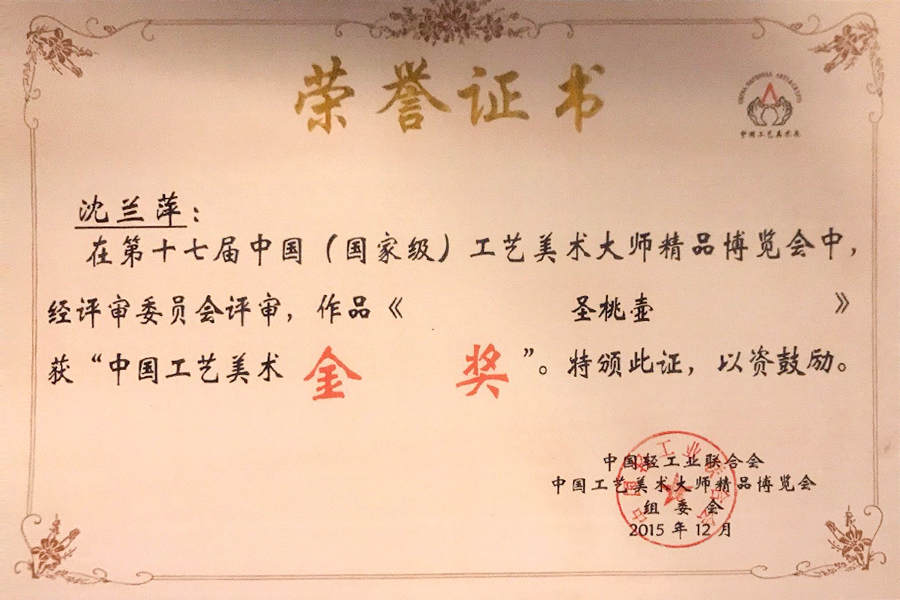 荣誉证书
中国工艺美术展
沈兰萍：
在第十七届中国（国家级）工艺美术大师精品博览会中，
经评审委员会评审，作品《 圣桃壶 》
获“中国工艺美术 金 奖”。特颁此证，以资鼓励。
中国轻工业联合会
中国工艺美术大师精品博览会
组 委 会
2015 年 12 月
中国轻工业联合会